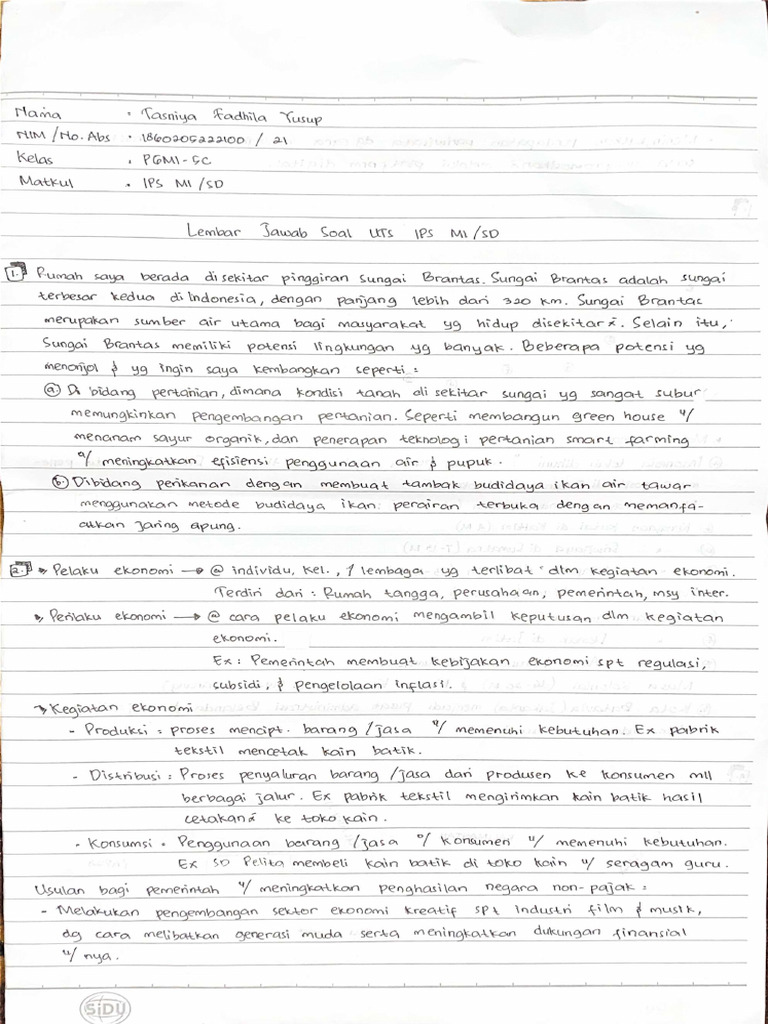 Nama : Tasniya Fadhila Yusup
NIM/No. Abs : 1860205222100 / 21
Kelas : PGMI-5C
Matkul : IPS MI/SD
Lembar Jawab Soal UTS IPS MI/SD
1. Rumah saya berada disekitar pinggiran Sungai Brantas. Sungai Brantas adalah sungai
terbesar kedua di Indonesia, dengan panjang lebih dari 320 km. Sungai Brantas
merupakan sumber air utama bagi masyarakat yg hidup disekitarx. Selain itu,
Sungai Brantas memiliki potensi lingkungan yg banyak. Beberapa potensi yg
menonjol & yg ingin saya kembangkan seperti :
a. Di bidang pertanian, dimana kondisi tanah di sekitar sungai yg sangat subur
memungkinkan pengembangan pertanian. Seperti membangun green house u/
menanam sayur organik, dan penerapan teknologi pertanian smart farming
u/ meningkatkan efisiensi penggunaan air & pupuk.
b. Dibidang perikanan dengan membuat tambak budidaya ikan air tawar
menggunakan metode budidaya ikan perairan terbuka dengan memanfa-
atkan jaring apung.
2. Pelaku ekonomi → @ individu, kel., / lembaga yg terlibat dlm kegiatan ekonomi.
Terdiri dari : Rumah tangga, perusahaan, pemerintah, msy inter.
Perilaku ekonomi → @ cara pelaku ekonomi mengambil keputusan dlm kegiatan
ekonomi.
Ex : Pemerintah membuat kebijakan ekonomi spt regulasi,
subsidi, & pengelolaan inflasi.
Kegiatan ekonomi
- Produksi : proses mencipt. barang/jasa u/ memenuhi kebutuhan. Ex pabrik
tekstil mencetak kain batik.
- Distribusi : Proses penyaluran barang/jasa dari produsen ke konsumen mll
berbagai jalur. Ex pabrik tekstil mengirimkan kain batik hasil
cetakanx ke toko kain.
- Konsumsi : Penggunaan barang/jasa o/ konsumen u/ memenuhi kebutuhan.
Ex SD Pelita membeli kain batik di toko kain u/ seragam guru.
Usulan bagi pemerintah u/ meningkatkan penghasilan negara non-pajak :
- Melakukan pengembangan sektor ekonomi kreatif spt industri film & musik,
dg cara melibatkan generasi muda serta meningkatkan dukungan finansial
u/ nya.
SiDU